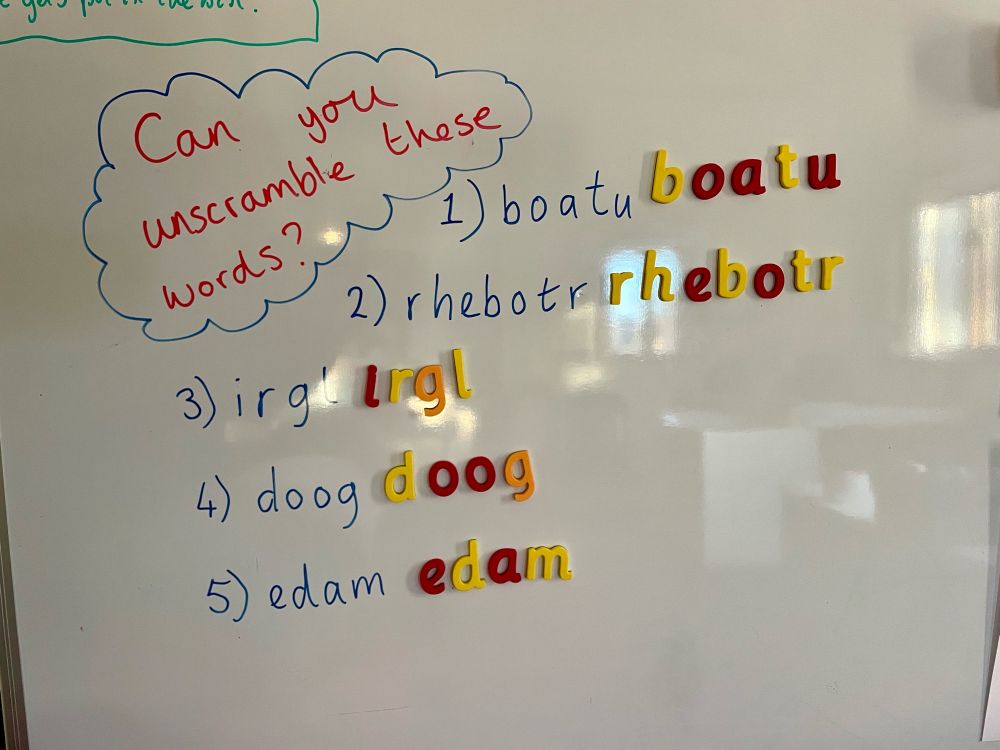 Can you
unscramble these
words?
1) boatu boatu
2) rhebotr rhebotr
3) irgl irgl
4) doog doog
5) edam edam